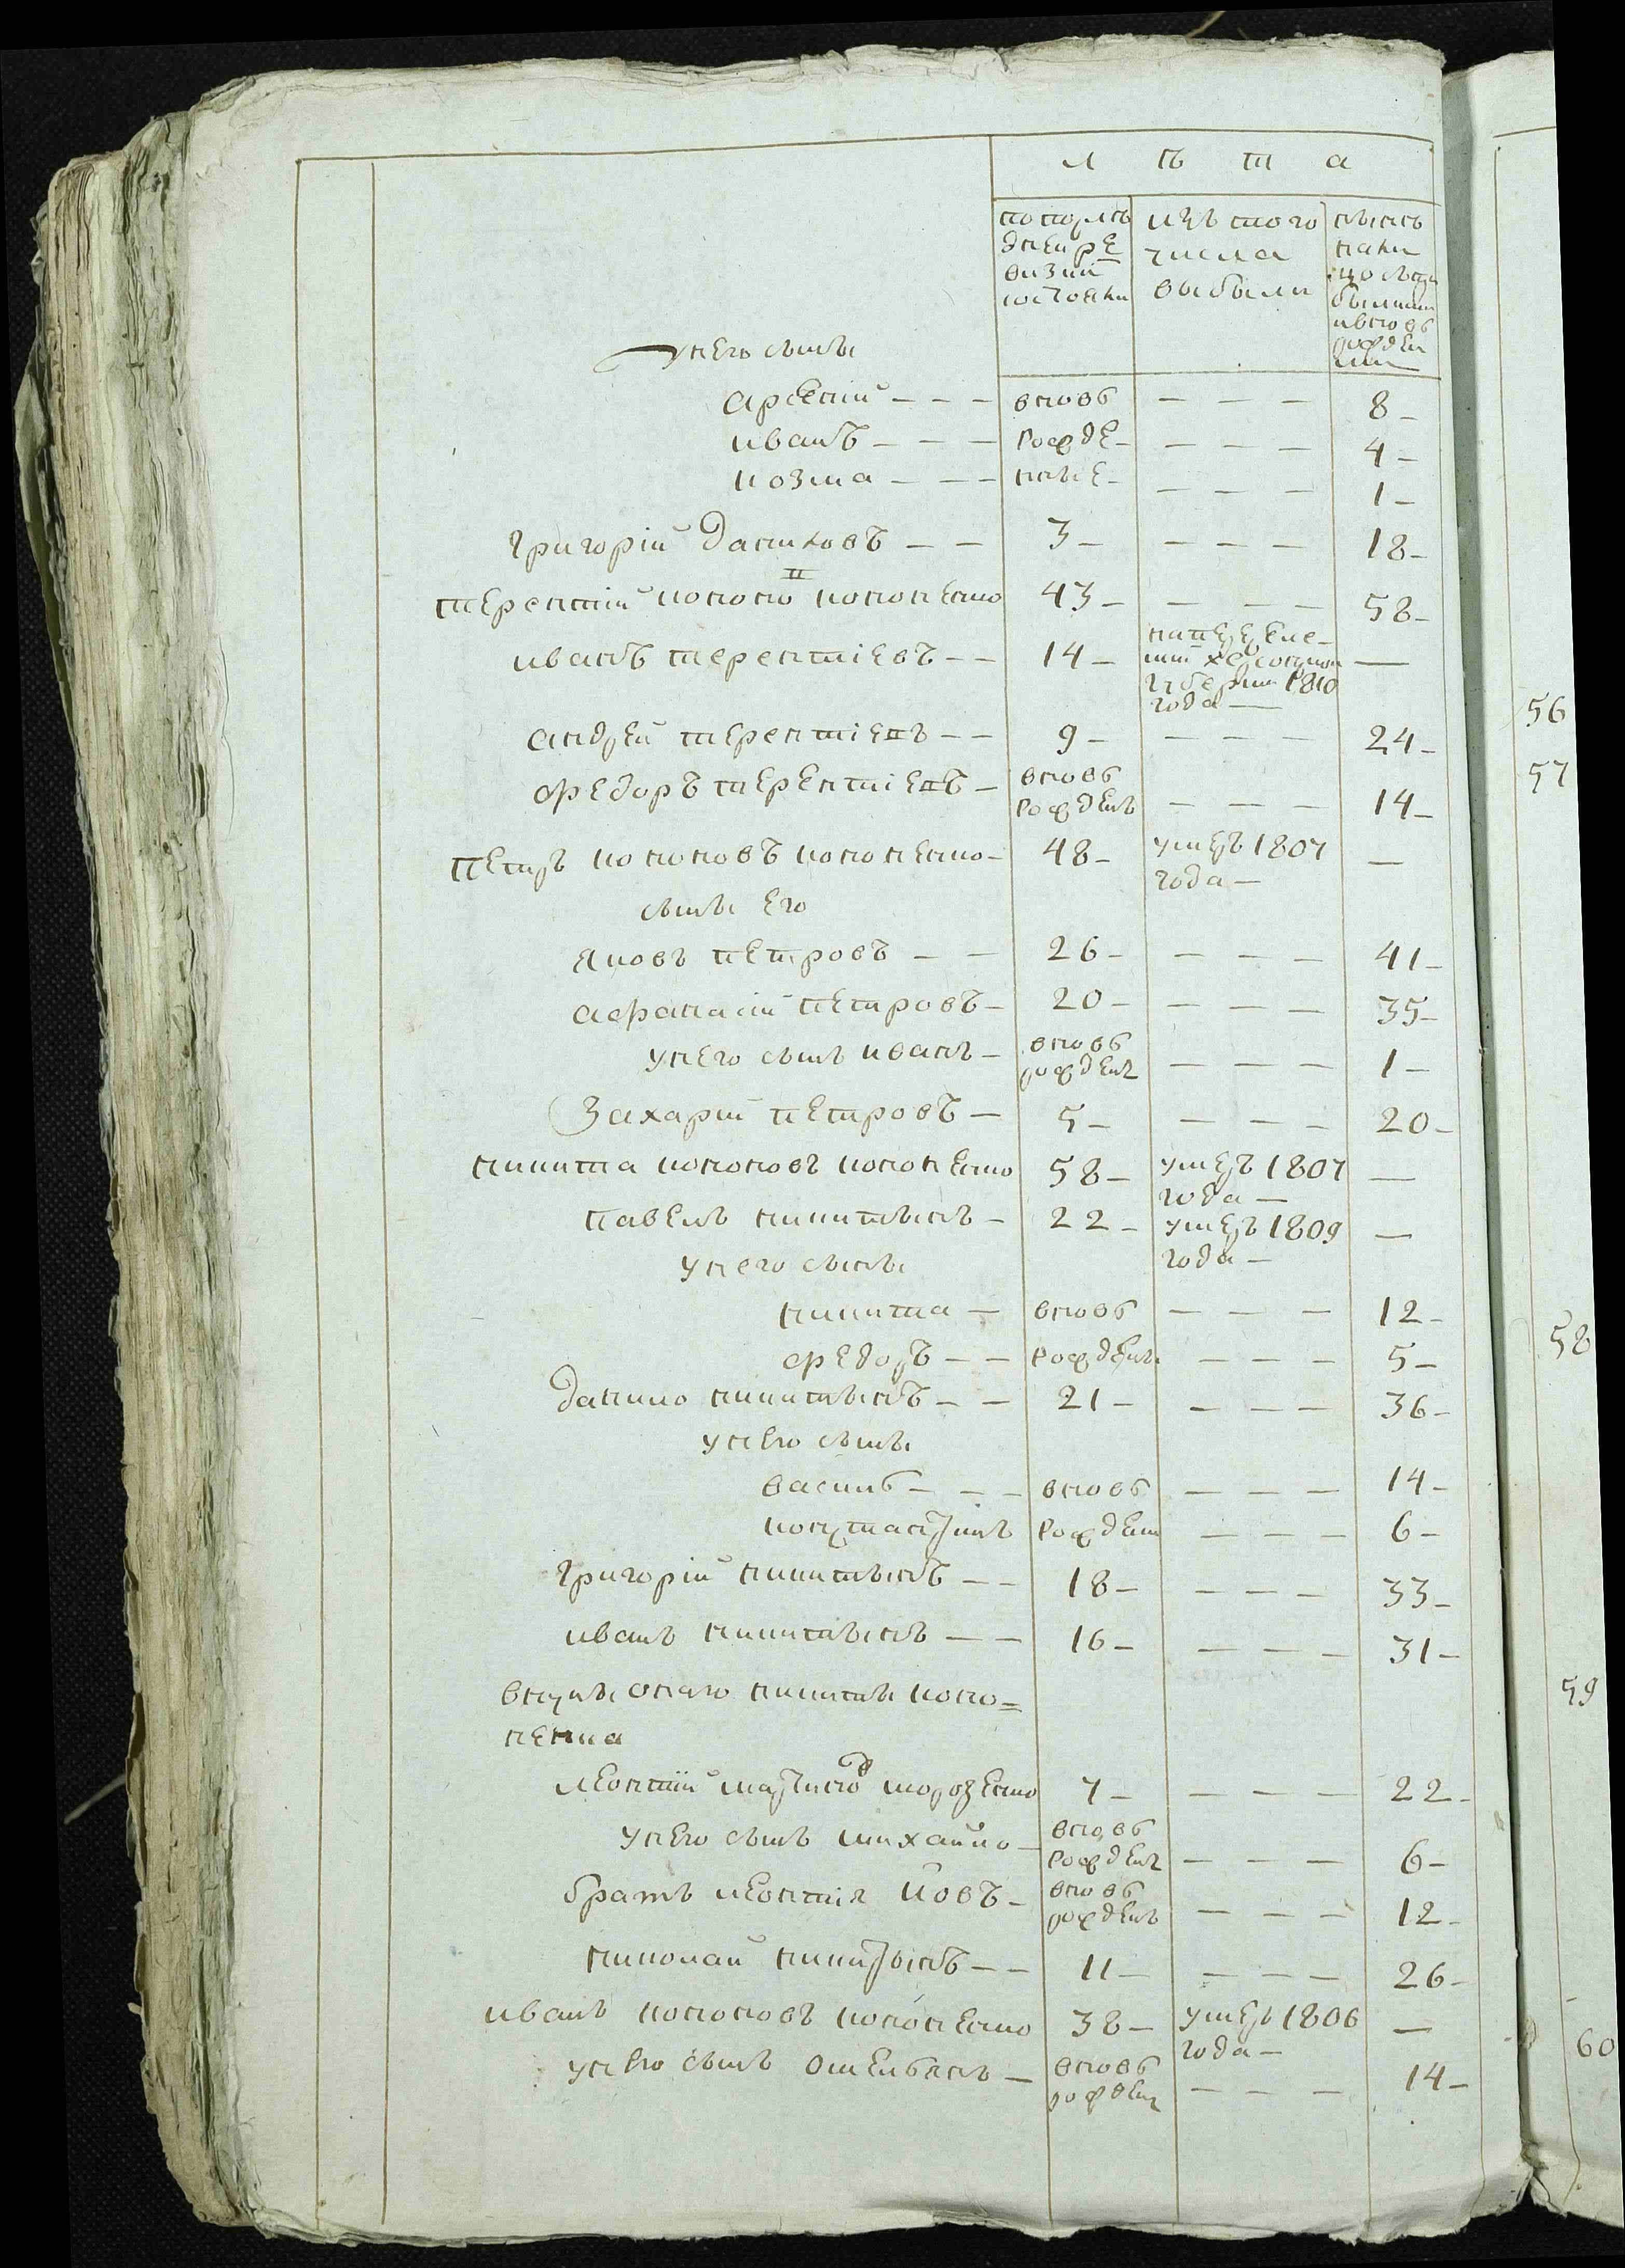 лѣта
по послѣ
дней ре
визіи
состояли
изъ того
числа
выбыли
нынѣ
на ли
цо съ при
былыми
и вновь
рожден
ными
у него сыны
арсеній — — — вновь — — — 8 —
иванъ — — — рожде — — — — 4 —
козма — — — нные — — — — 1 —
григорій даниловъ — — 3 — — — — 18 —
терентій кононовъ кононенко 43 — — — — 58 —
иванъ терентіевъ — — 14 — —
херсонской
губерніи 1810
года —
андрей терентіевъ — — 9 — — — — 24 —
федоръ терентіевъ — вновь
рожденъ — — — 14 —
петръ кононовъ кононенко — 48 — умеръ 1807 —
года —
сыны его
яковъ петровъ — — 26 — — — — 41 —
афанасій петровъ — 20 — — — — 35 —
у него сынъ иванъ — вновь
рожденъ — — — 1 —
захарій петровъ — 5 — — — — 20 —
никита кононовъ кононенко 58 — умеръ 1807 —
года —
павелъ никитынъ — 22 — умеръ 1809 —
года —
у него сыны
никита — вновь — — — 12 —
федоръ — — рожденны — — — 5 —
данило никитынъ — — 21 — — — — 36 —
у него сыны
василь — — — вновь — — — 14 —
константинъ рожденны — — — 6 —
григорій никитынъ — — 18 — — — — 33 —
иванъ никитынъ — — 16 — — — — 31 —
внуки онаго никиты коно=
ненка
леонтій мартиновъ морозенко 7 — — — — 22 —
у него сынъ михайло — вновь
рожденъ — — — 6 —
братъ леонтія йовъ — вновь
рожденъ — — — 12 —
николай никитынъ — — 11 — — — — 26 —
иванъ кононовъ кононенко 38 — умеръ 1806 —
года —
у него сынъ омельянъ — вновь
рожденъ — — — 14 —
56
57
58
59
60